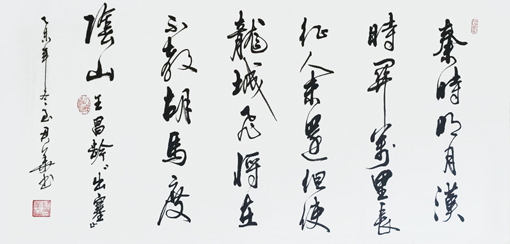 秦時明月漢
時關萬里長
征人未還但使
龍城飛將在
不教胡馬度
陰山
王昌齡出塞
乙未年冬玉君華書